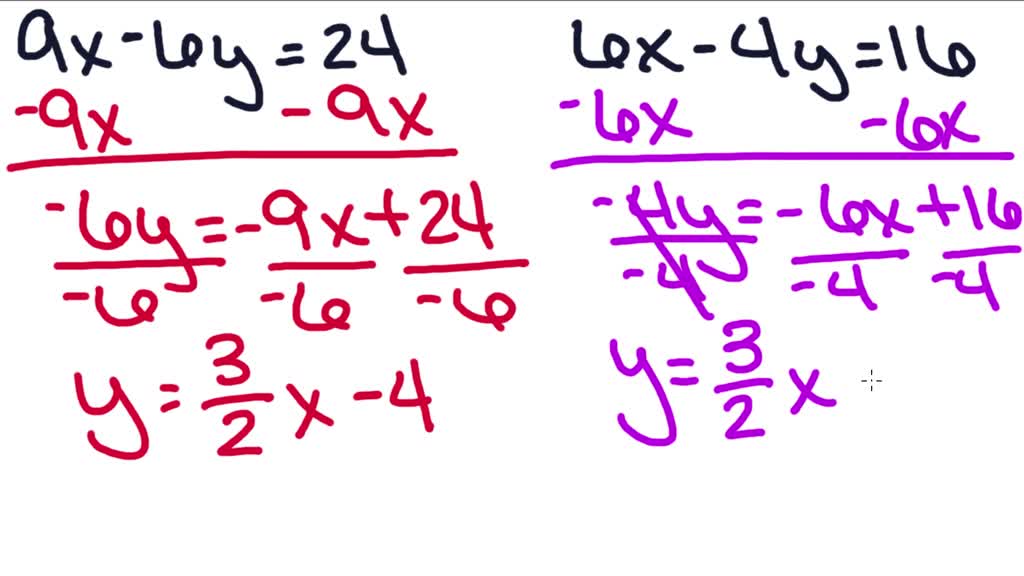 9x - 6y = 24
-9x - 9x
-6y = -9x + 24
-6 -6 -6
y = 3/2 x - 4
6x - 4y = 16
-6x -6x
-4y = -6x + 16
-4 -4 -4
y = 3/2 x